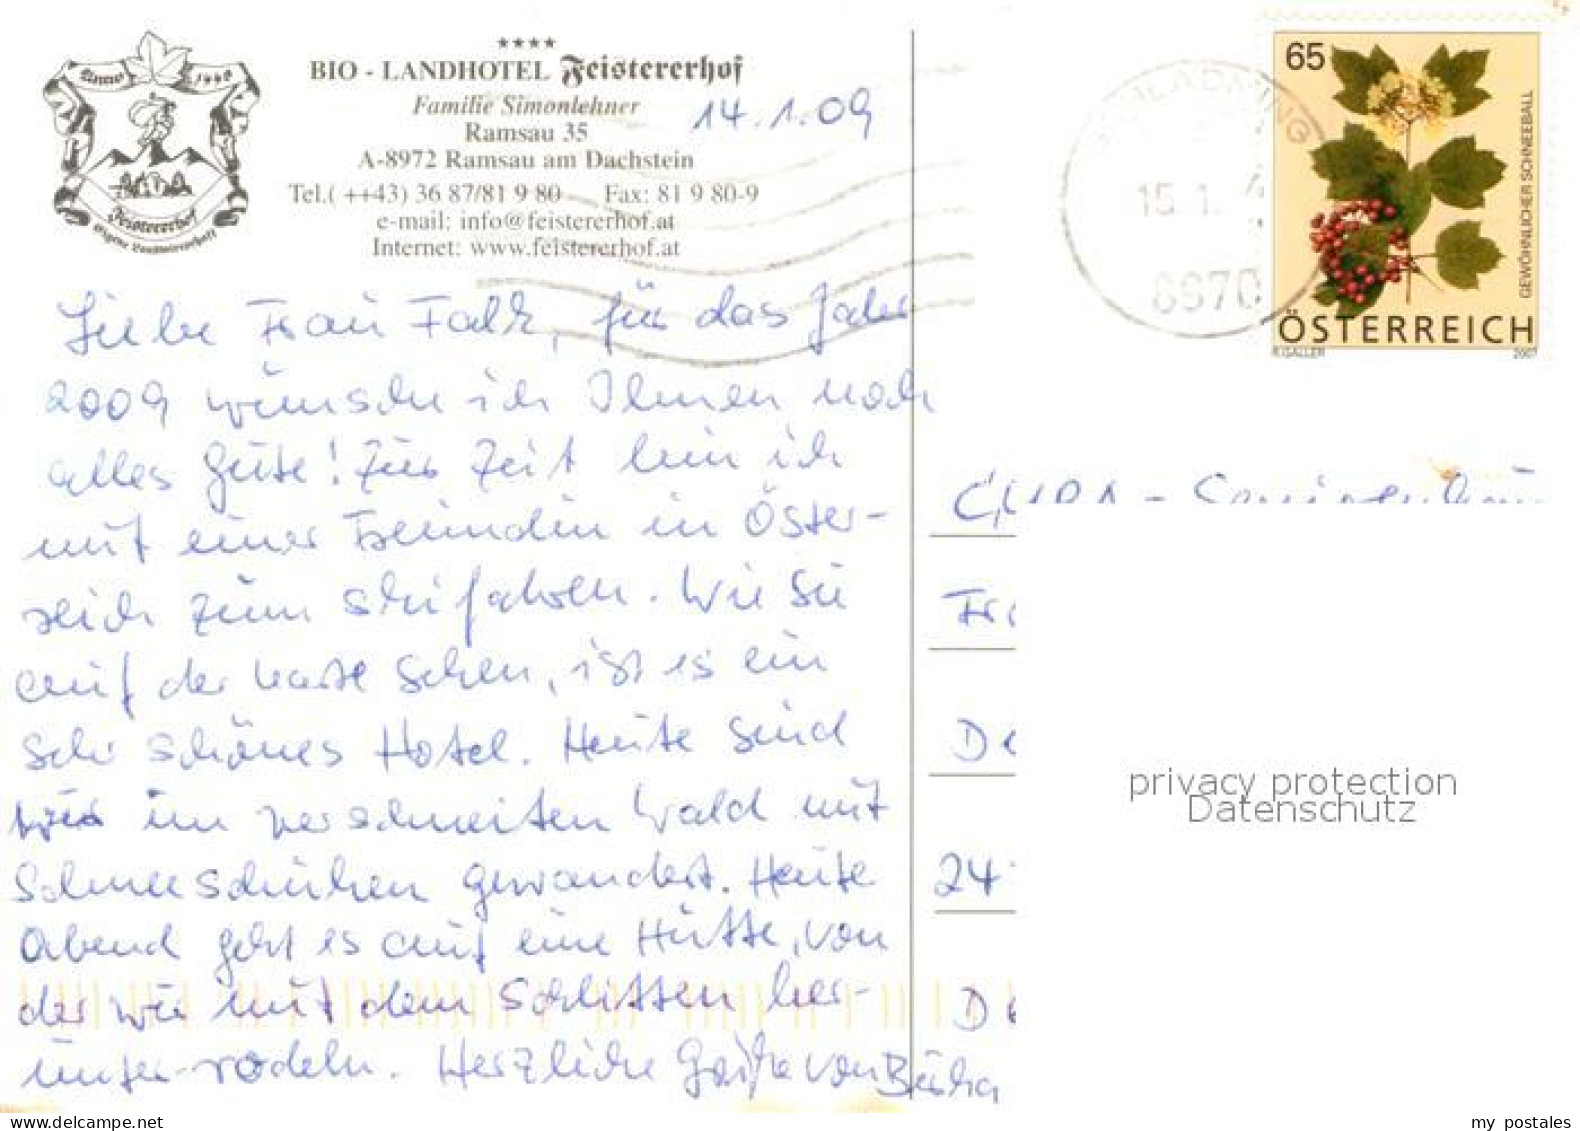 ★★★★
BIO - LANDHOTEL Feistererhof
Familie Simonlehner
Ramsau 35
A-8972 Ramsau am Dachstein
Tel.( ++43) 36 87/81 9 80 Fax: 81 9 80-9
e-mail: info@feistererhof.at
Internet: www.feistererhof.at
Anno
Feistererhof
Eigene Landwirtschaft
14.1.09
Liebe Frau Falk, für das Jahr
2009 wünsche ich Ihnen noch
alles Gute! Zur Zeit bin ich
mit einer Freundin in Öster-
reich zum skifahren. Wie Sie
auf der Karte sehen, ist es ein
sehr schönes Hotel. Heute sind
wir im verschneiten Wald mit
Schneeschuhen gewandert. Heute
Abend geht es auf eine Hütte, von
der wir mit dem Schlitten her-
unter-rodeln. Herzliche Grüße von
SCHLADMING
15.1.
8970
65
GEWÖHNLICHER SCHNEEBALL
ÖSTERREICH
2007
Fr
De
24
privacy protection
Datenschutz
my postales